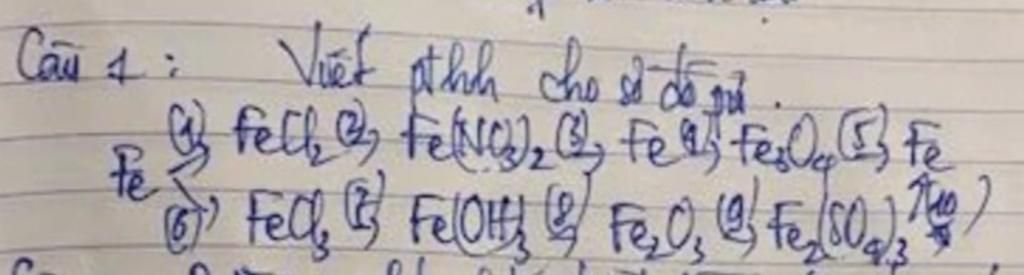 Câu 1: Viết pthh cho sơ đồ
(1) FeCl2 (2) Fe(NO3)2 (3) Fe (4) Fe3O4 (5) Fe
Fe
(6) FeCl3 (7) Fe(OH)3 (8) Fe2O3 (9) Fe2(SO4)3 (10)